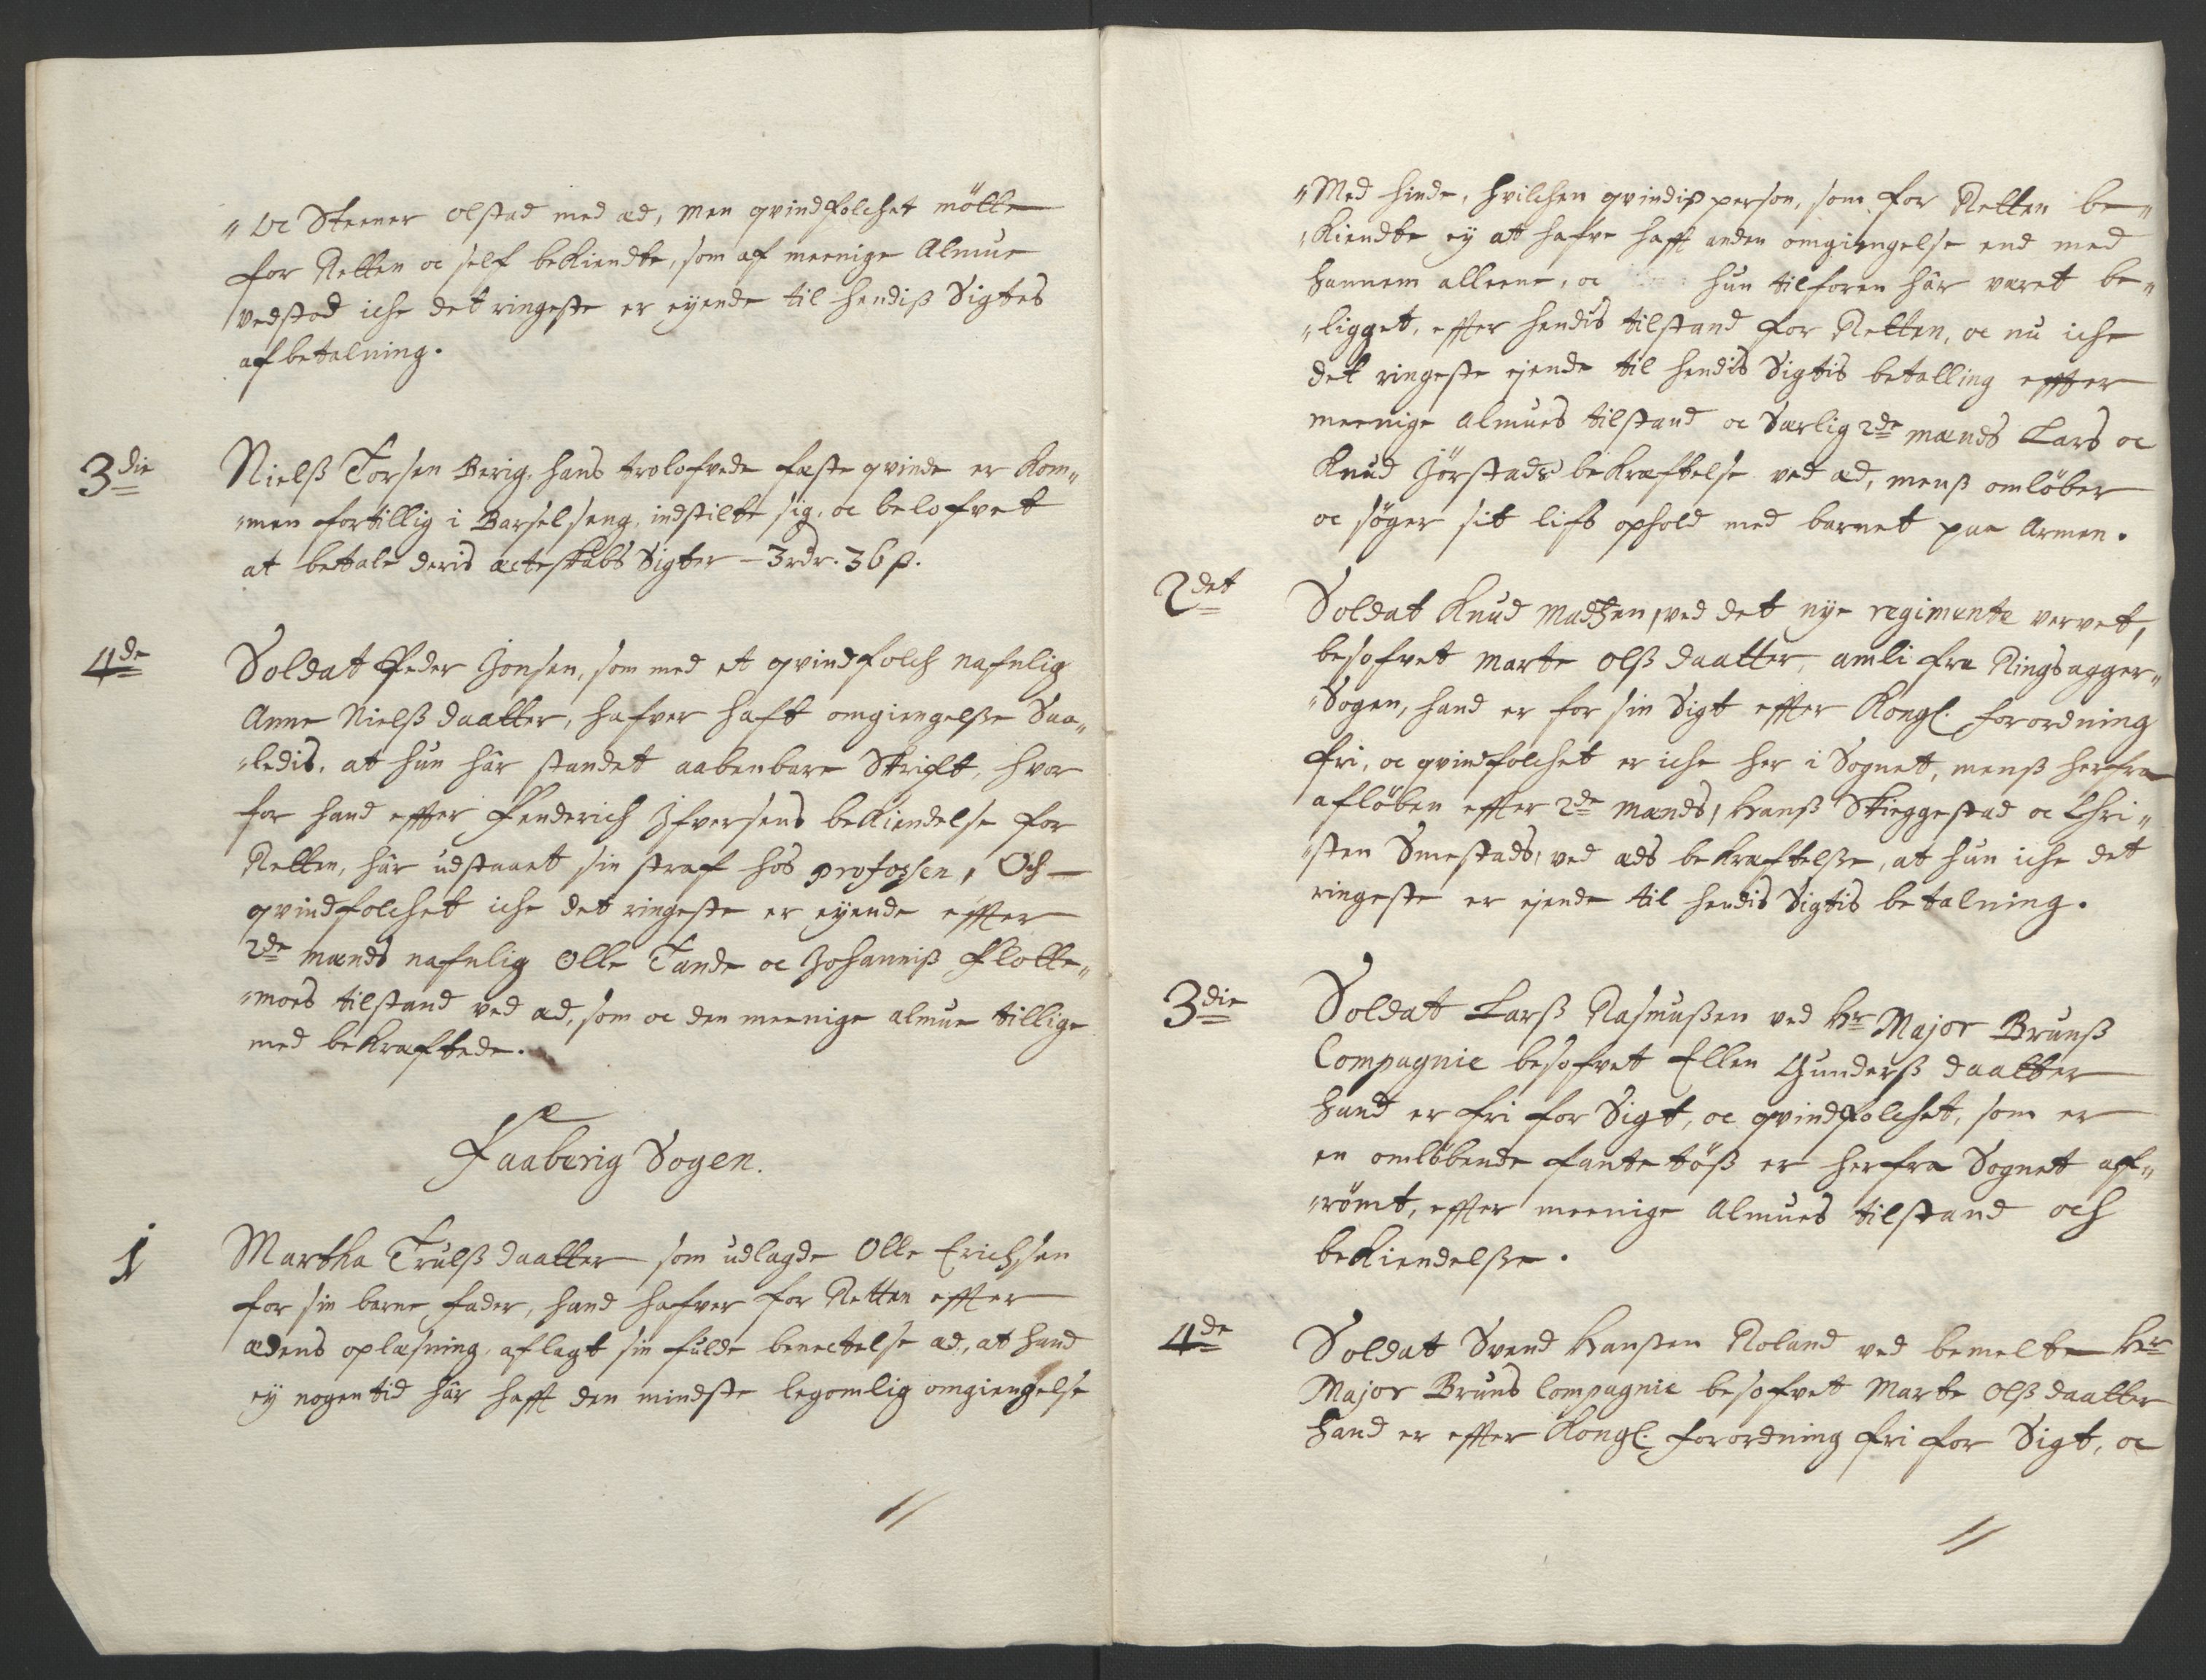 " oc Steener Olstad med æd, men qvindfolchet mötte
for Retten oc self bekiendte, som af meenige Almue
vedstod iche det ringeste er eyende til hendiß Sigtes
afbetalning.
3die Nielß Torsen Berig, hans trolofvede feste qvinde er kom„
„men fortillig i Barselseng, indstilte sig, oc belofvet
at betale deris ecteskabs Sigter – 3 rdr. 36 ß.
4de Soldat Peder Jonsen, som med et qvindfolch nafnlig
Anne Nielß daatter, hafver haft omgiengelße Saa„
„ledis, at hun hâr standet aabenbare Skrift, hvor
for hand effter Fenderich Ifversens bekiendelse for
Retten, hâr udstaaet sin straf hos profossen, Och
qvindfolchet iche det ringeste er eyende effter
2de mænds nafnlig Olle Tande oc Johanniß Flotte„
„moes tilstand ved æd, som oc den meenige almue tillige
med bekraftede.
Faaberig Sogen.
1 Martha Trulß daatter som udlagde Olle Erichsen
for sin barne fader, hand hafver for Retten effter
ædens oplæsning, aflagt sin fulde benectelse æd, at hand
ey nogen tid hâr hafft den mindste legomlig omgiengelse
"Med hinde, hvilchen qvindiß person, som for Retten be„
„kiendte ey at hafve hafft anden omgiengelse end med
hannem alleene, oc hun tilforen hâr været be„
„ligget, effter hendis tilstand for Retten, oc nu iche
det ringeste ejende til hendis Sigtis betalling effter
meenige Almues tilstand oc Særlig 2de mænds Lars oc
Knud Jörstads bekræftelse ved æd, menß omlöber
oc söger sit lifs ophold med barnet paa Armen.
2det Soldat Knud Madtzen, ved det nye regimente vervet,
besofvet Marte Olß daatter, amli fra Ringsagger„
„Sogen, hand er for sin Sigt effter Kongl. forordning
fri, oc qvindfolchet er iche her i Sognet, menß herfra
aflöben effter 2de Mænds, Hanß Skieggestad oc Chri„
„sten Smestads, ved æds bekræftelße, at hun iche det
ringeste er ejende til hendis Sigtis betalning.
3die Soldat Larß Rasmußen ved Hr Major Brunß
Compagnie besofvet Ellen Gunderß daatter
hand er fri for Sigt, oc qvindfolchet, som er
en omlöbende fante töß er herfra Sognet aff„
„römt, effter meenige Almues tilstand och
bekiendelße.
4de Soldat Svend Hanßen Roland ved bemelte Hr
Major Bruns Compagnie besofvet Marte Olß daatter
hand er effter Kongl. forordning fri for Sigt, oc